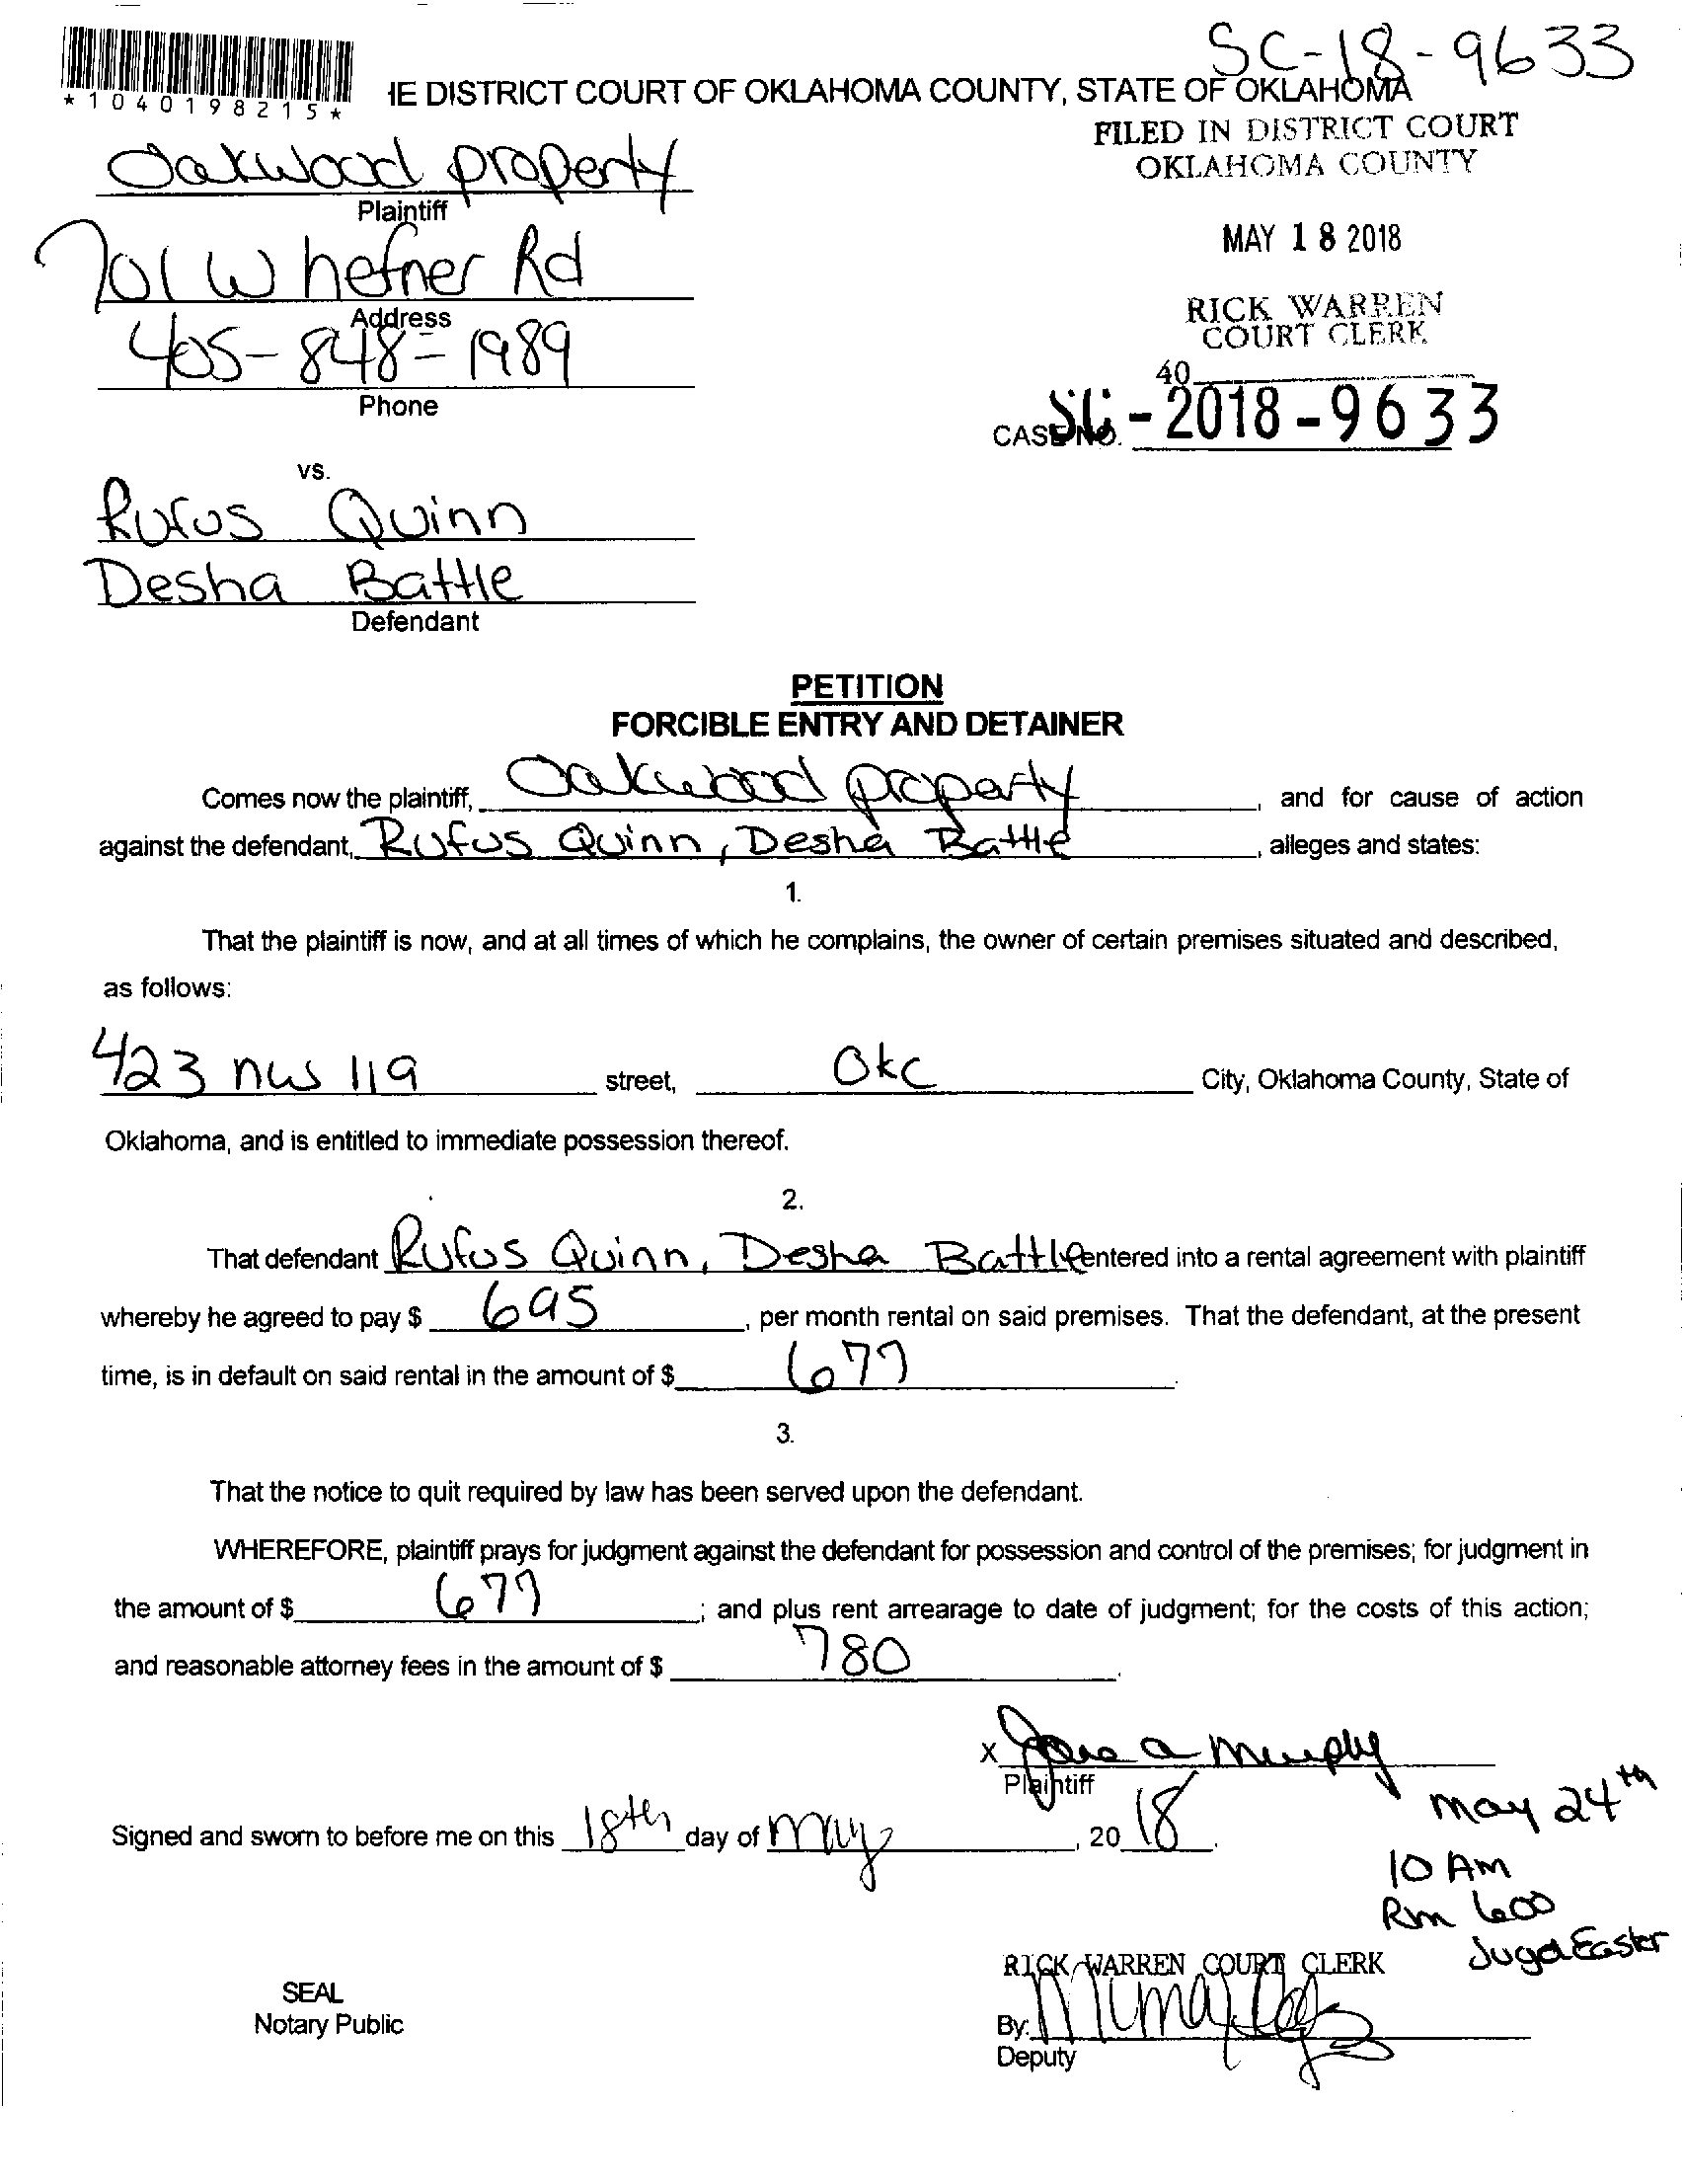 SC-18-9633
*1040198215*
IE DISTRICT COURT OF OKLAHOMA COUNTY, STATE OF OKLAHOMA
FILED IN DISTRICT COURT
OKLAHOMA COUNTY
Oakwood property
Plaintiff
MAY 18 2018
701 W hefner Rd
Address
RICK WARREN
COURT CLERK
405-848-1989
Phone
40
CASE NO. - 2018 - 9633
vs.
Rufus Quinn
Desha Battle
Defendant
PETITION
FORCIBLE ENTRY AND DETAINER
Comes now the plaintiff, Oakwood property, and for cause of action
against the defendant, Rufus Quinn, Desha Battle, alleges and states:
1.
That the plaintiff is now, and at all times of which he complains, the owner of certain premises situated and described,
as follows:
423 nw 119 street, Okc City, Oklahoma County, State of
Oklahoma, and is entitled to immediate possession thereof.
2.
That defendant Rufus Quinn, Desha Battle entered into a rental agreement with plaintiff
whereby he agreed to pay $ 695, per month rental on said premises. That the defendant, at the present
time, is in default on said rental in the amount of $ 677.
3.
That the notice to quit required by law has been served upon the defendant.
WHEREFORE, plaintiff prays for judgment against the defendant for possession and control of the premises; for judgment in
the amount of $ 677; and plus rent arrearage to date of judgment; for the costs of this action;
and reasonable attorney fees in the amount of $ 780.
x a Murphy
Plaintiff
Signed and sworn to before me on this 18th day of May, 20 18.
may 24th
10 AM
Rm 600
Juge Easter
RICK WARREN COURT CLERK
SEAL
Notary Public
By:
Deputy